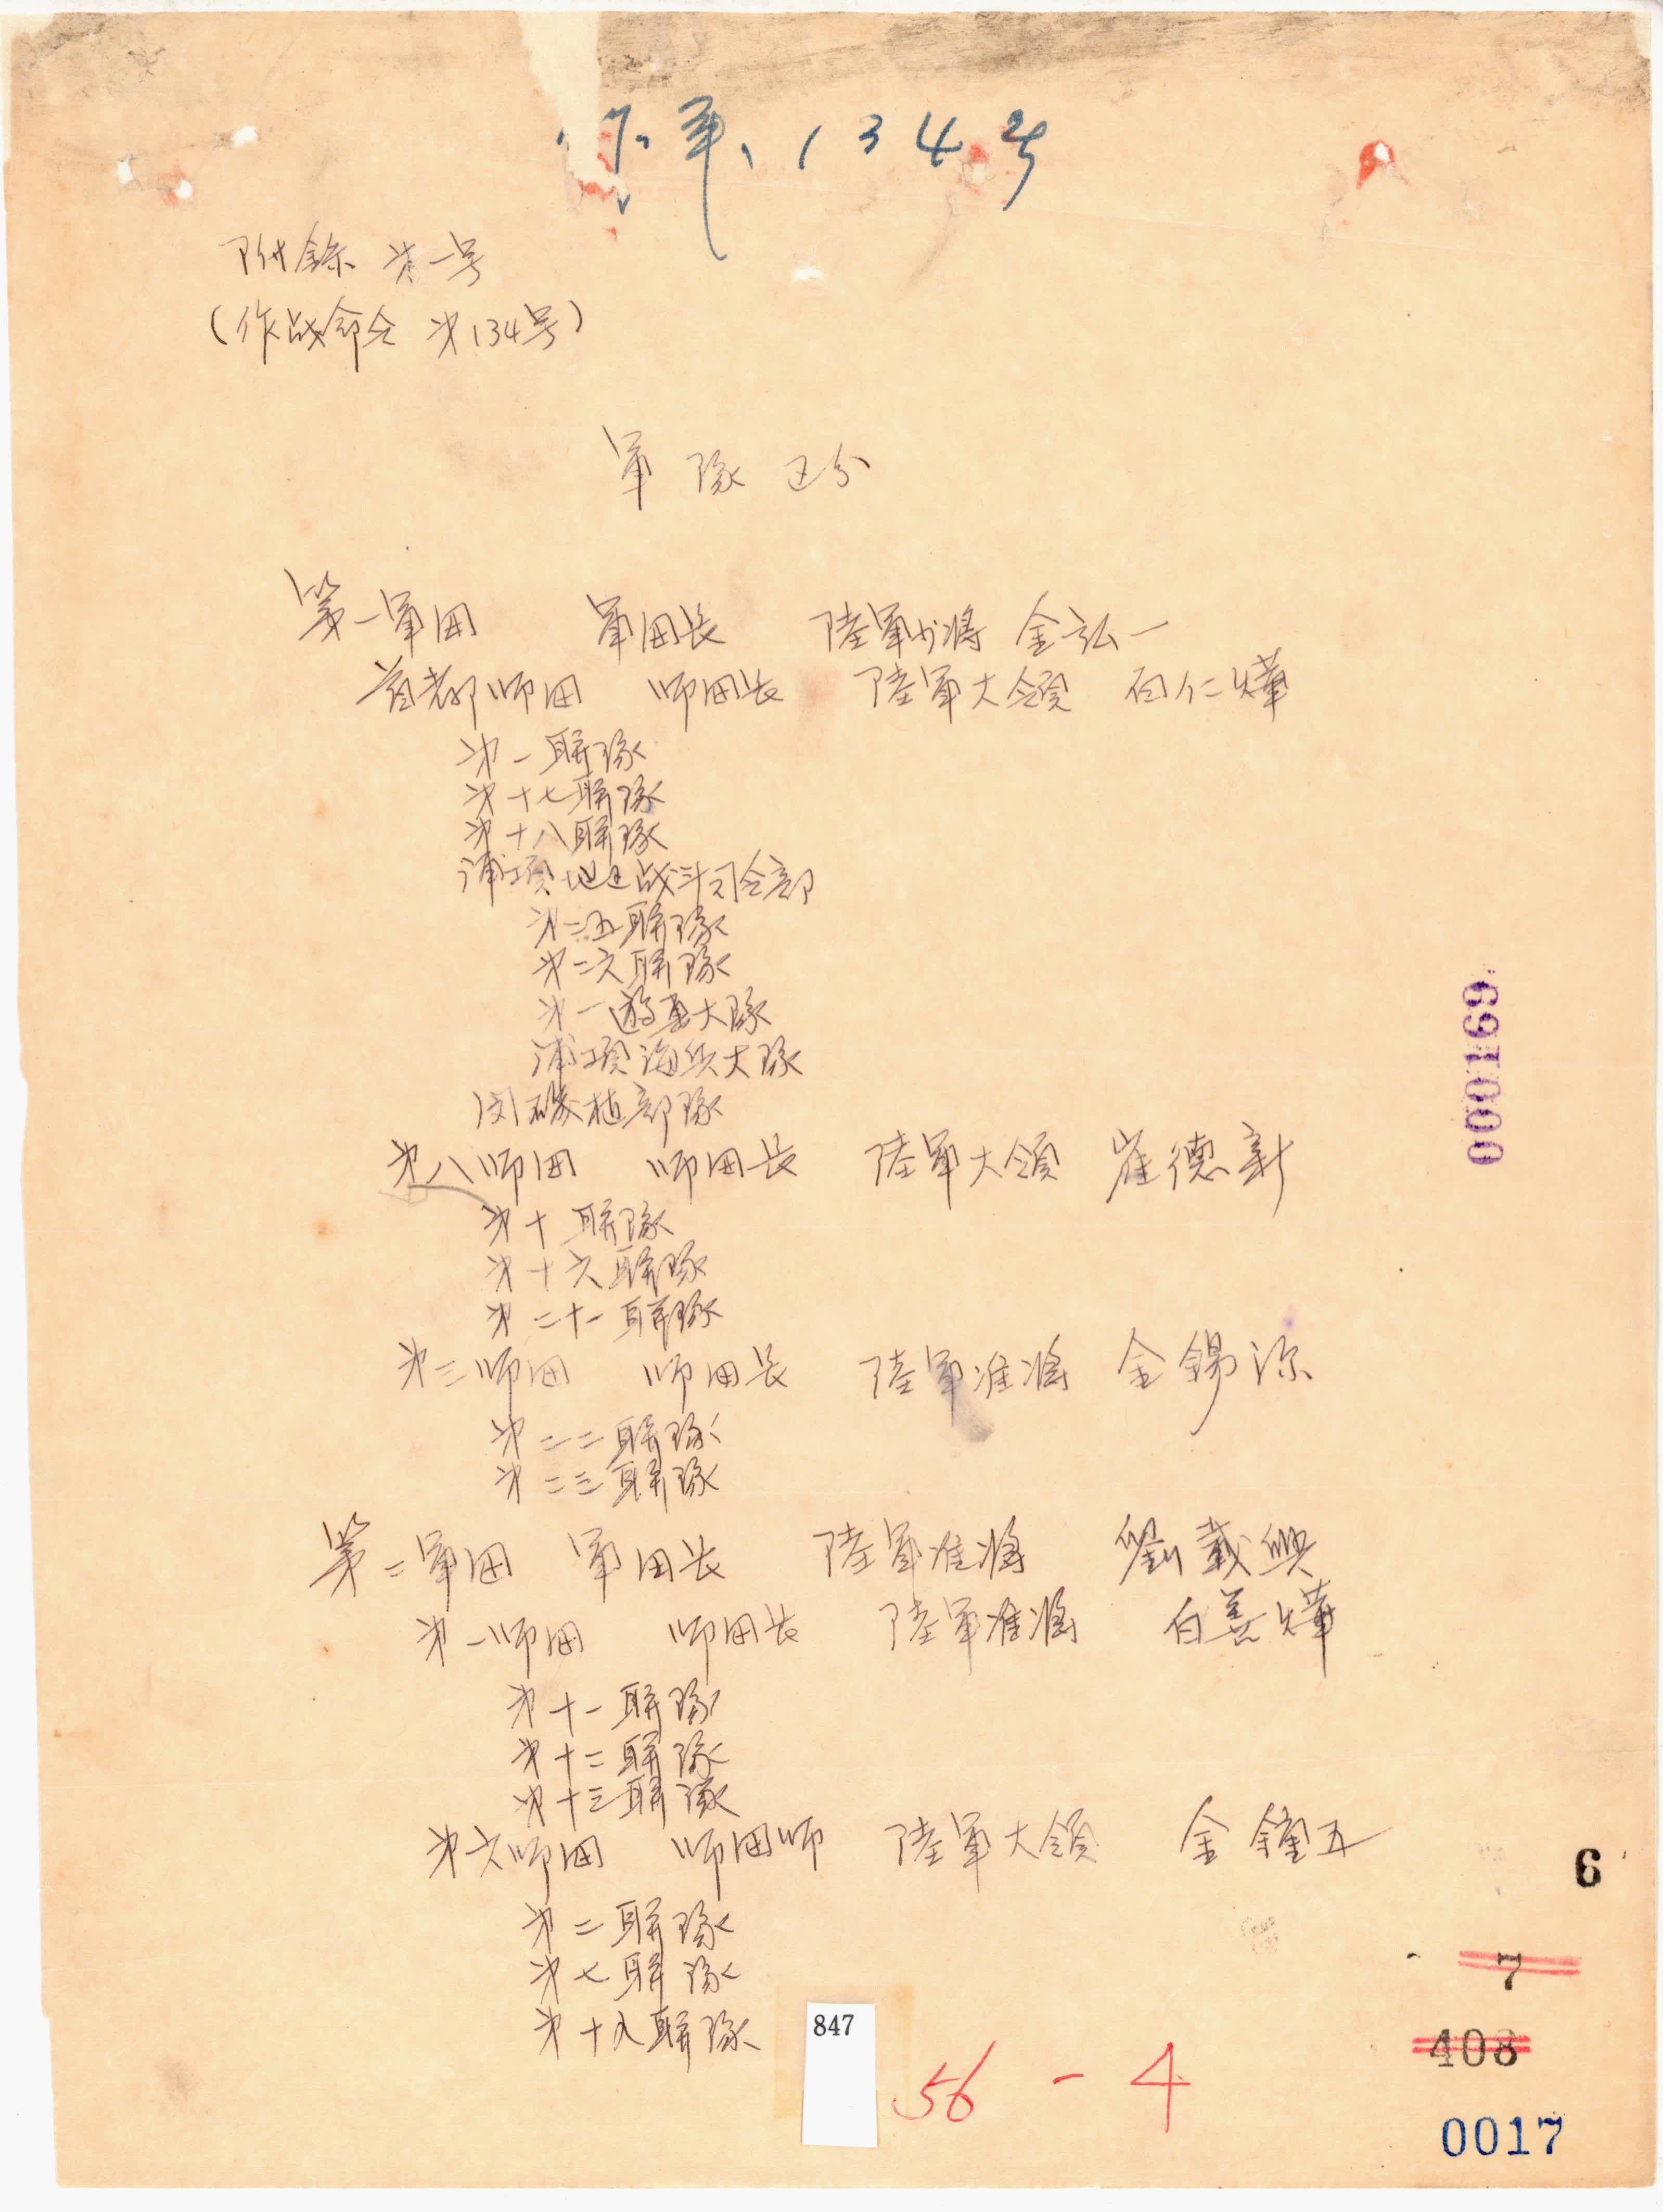 作.第、134号
附錄 第一号
(作战命令 第134号)
軍隊区分
第一軍団 軍団長 陸軍少將 金弘一
首都师団 师団長 陸軍大領 白仁燁
第一聯隊
第十七聯隊
第十八聯隊
浦項地区战斗司令部
第二五聯隊
第二六聯隊
第一遊擊大隊
浦項海兵大隊
閔磯植部隊
第八师団 师団長 陸軍大領 崔德新
第十聯隊
第十六聯隊
第二十一聯隊
第三师団 师団長 陸軍准將 金錫源
第二二聯隊
第二三聯隊
第二軍団 軍団長 陸軍准將 劉載興
第一师団 师団長 陸軍准將 白善燁
第十一聯隊
第十二聯隊
第十三聯隊
第六师団 师団师 陸軍大領 金鍾五
第二聯隊
第七聯隊
第十九聯隊
000169
6
7
408
847
56-4
0017